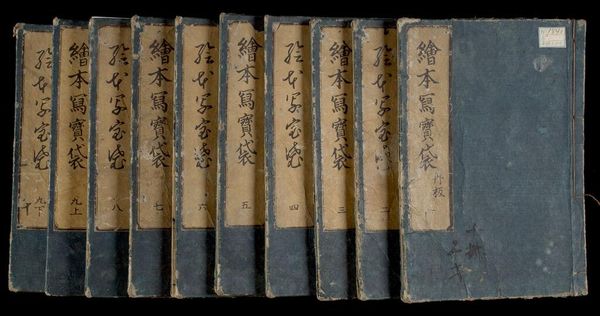 繪本寫寶袋
一
繪本寫寶袋
二
繪本寫寶袋
三
繪本寫寶袋
四
繪本寫寶袋
五
繪本寫寶袋
六
繪本寫寶袋
七
繪本寫寶袋
八
繪本寫寶袋
九上
繪本寫寶袋
九下
十